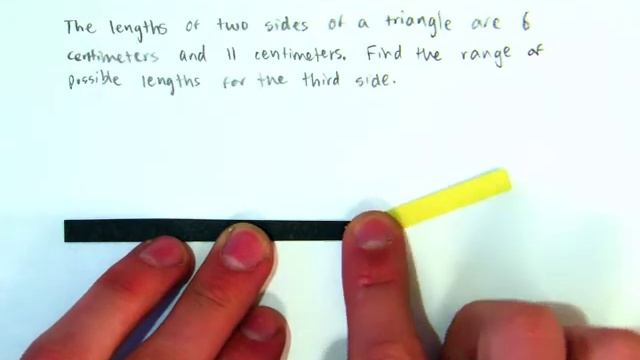 The lengths of two sides of a triangle are 6
centimeters and 11 centimeters. Find the range of
possible lengths for the third side.